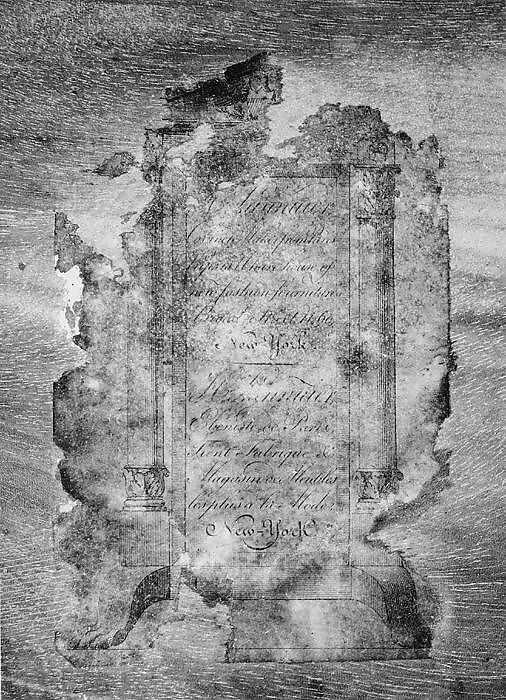 H. Lannuier,
Cabinet Maker from Paris
Kips is Whare house of
new fashion fourniture
Broad Street, 60,
New-York
H. Lannuier,
Ebeniste de Paris,
Tient Fabrique &
Magasin de Meubles
les plus a la Mode,
New-York